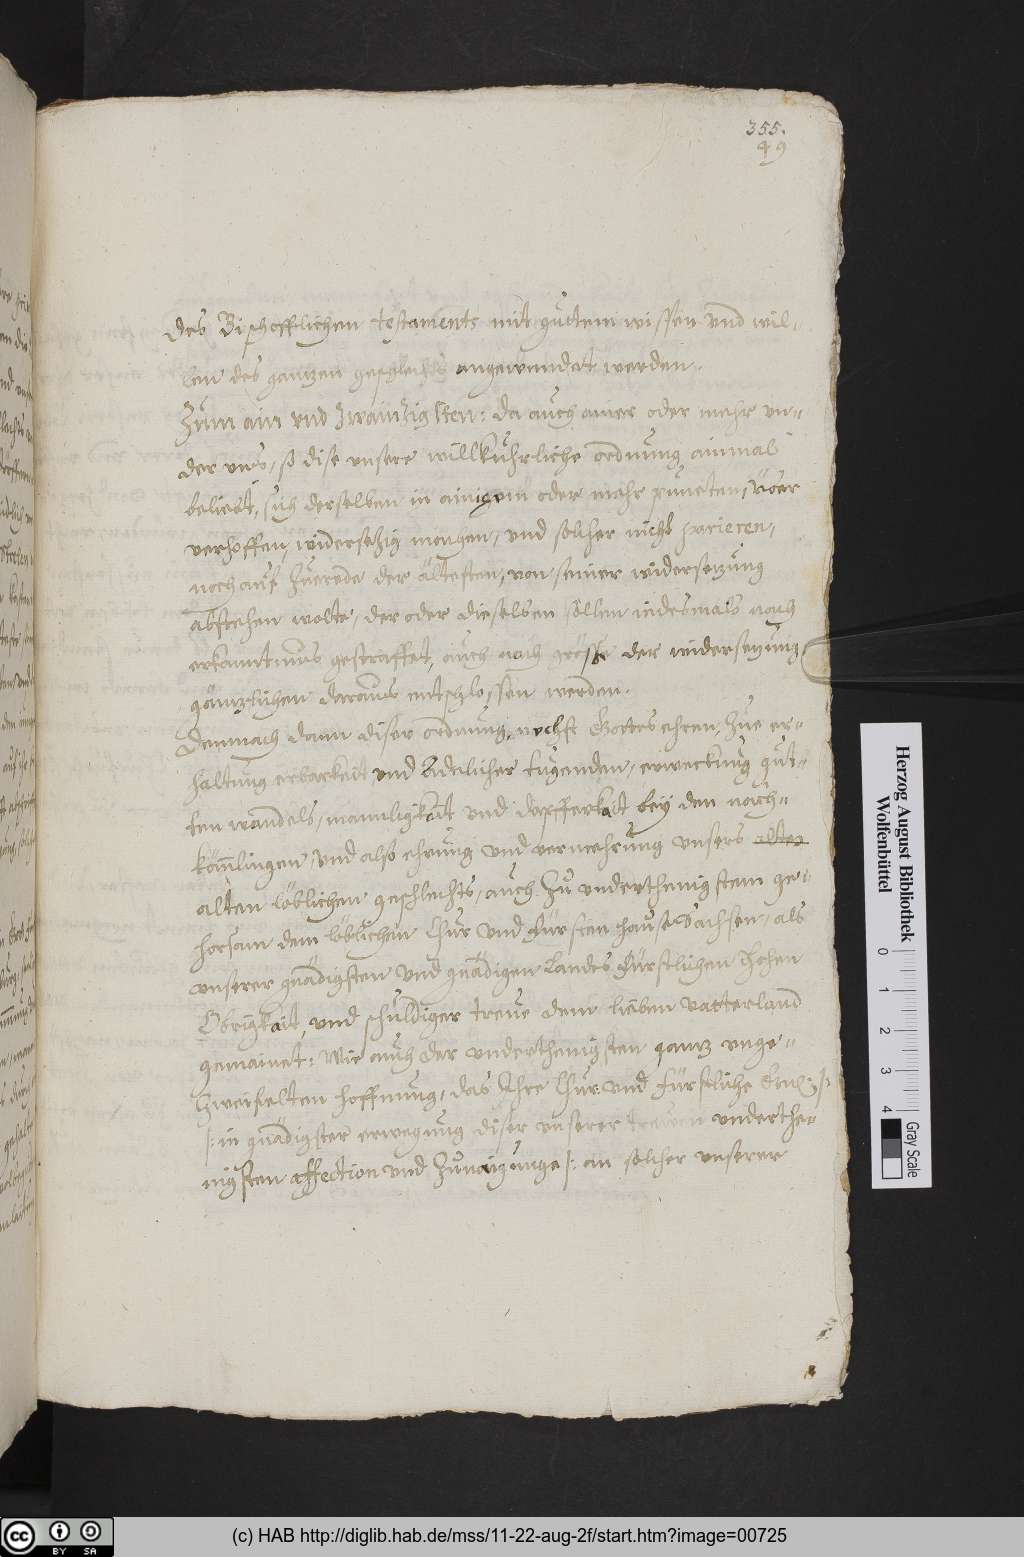 355.
49
des Bischofflichen testaments mit guttem wissen vnd wil-
len des gantzen geschlechts angewendet werden.
Zum ain vnd zwäintzigsten: da auch ainer oder mehr vn-
der vns, so dise vnsere willkuhrliche ordnung ainmal
beliebt, sich derselben in ainigem oder mehr puncten, vber
verhoffen, widersetzig machen, vnd solcher nicht parieren,
noch auf Zuerede der ältesten, von seiner widersetzung
abstehen wolte, der oder dieselben sollen iedesmals nach
erkanntnus gestraffet, auch nach grösse der widersetzung
gäntzlichen daraus entschlossen werden.
Demnach dann diser ordnung, nechst Gottes ehren, Zue er-
haltung erbarkeit vnd Adelicher tugenden, erweckung gut-
ten wandels, mannligkait vnd dapfferkait bey den nach-
kömlingen, vnd also ehrung vnd vermehrung vnsers alten
alten löblichen geschlechts, auch Zu vnderthenigstem ge-
horsam dem löblichen Chur vnd Fürsten hause Sachsen, als
vnserer gnädigsten vnd gnädigen Landes Fürstlichen Hohen
Obrigkait, vnd schuldiger treue dem lieben Vatterland
gemainet: Wie auch der vnderthenigsten gantz vnge-
zweiffelten hoffnung, das Ihre Chur: vnd Fürstliche Gnd:
/: in gnädigster erwegung diser vnserer trewen vnderthe-
nigsten affection vnd Zunaigunge :/ an solcher vnserer
Herzog August Bibliothek
Wolfenbüttel
0 1 2 3 4
Gray Scale
cc BY SA
(c) HAB http://diglib.hab.de/mss/11-22-aug-2f/start.htm?image=00725